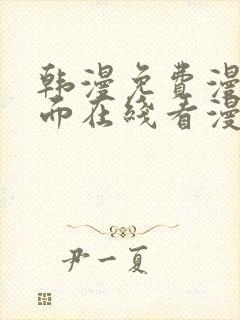 韩漫免费漫
而在线看漫
尹一夏